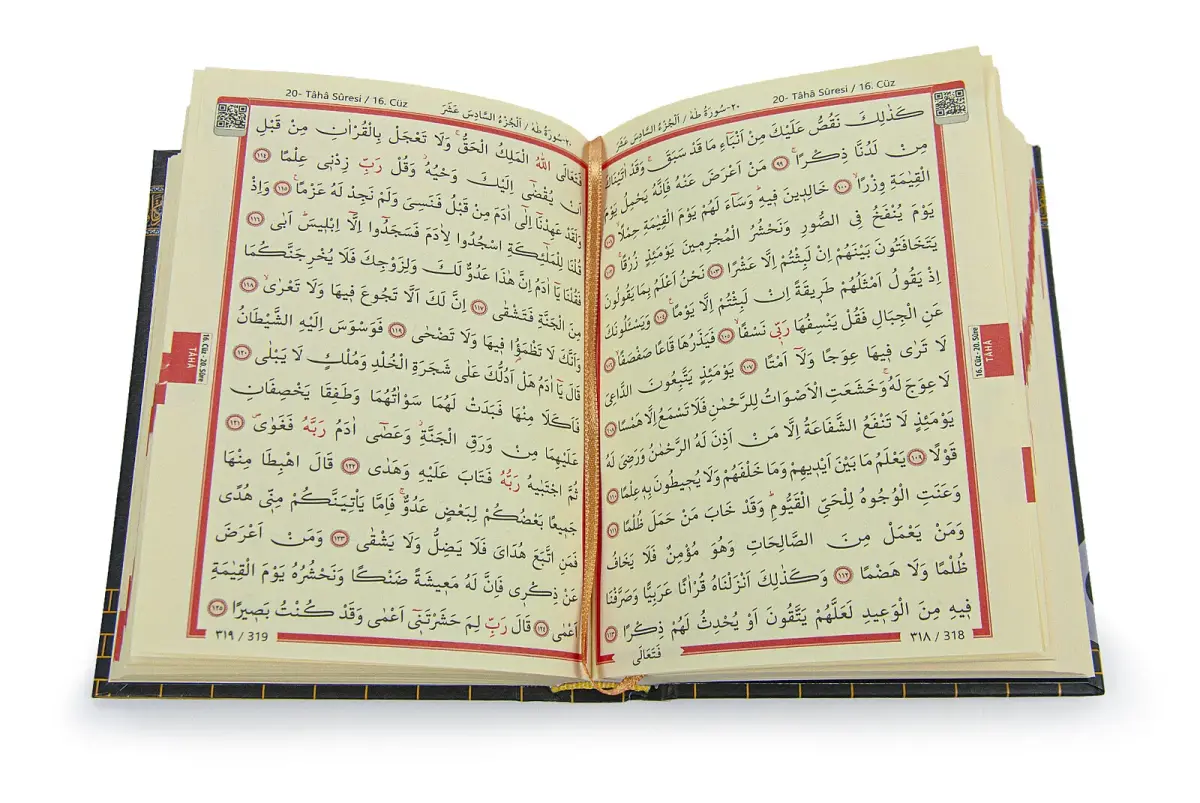 20- Tâhâ Sûresi / 16. Cüz
٢٠-سُورَةُ طٰهٰ / اَلْجُزْءُ السَّادِسَ عَشَرَ
كَذٰلِكَ نَقُصُّ عَلَيْكَ مِنْ اَنْبَٓاءِ مَا قَدْ سَبَقَۚ وَقَدْ اٰتَيْنَاكَ
مِنْ لَدُنَّا ذِكْرًاۚ ﴿٩٩﴾ مَنْ اَعْرَضَ عَنْهُ فَاِنَّهُ يَحْمِلُ يَوْمَ
الْقِيٰمَةِ وِزْرًاۙ ﴿١٠٠﴾ خَالِدِينَ فِيهِۜ وَسَٓاءَ لَهُمْ يَوْمَ الْقِيٰمَةِ حِمْلًاۙ ﴿١٠١﴾
يَوْمَ يُنْفَخُ فِي الصُّورِ وَنَحْشُرُ الْمُجْرِمِينَ يَوْمَئِذٍ زُرْقًاۚ ﴿١٠٢﴾
يَتَخَافَتُونَ بَيْنَهُمْ اِنْ لَبِثْتُمْ اِلَّا عَشْرًا ﴿١٠٣﴾ نَحْنُ اَعْلَمُ بِمَا يَقُولُونَ
اِذْ يَقُولُ اَمْثَلُهُمْ طَرِيقَةً اِنْ لَبِثْتُمْ اِلَّا يَوْمًا۟ ﴿١٠٤﴾ وَيَسْـَٔلُونَكَ
عَنِ الْجِبَالِ فَقُلْ يَنْسِفُهَا رَبِّي نَسْفًاۙ ﴿١٠٥﴾ فَيَذَرُهَا قَاعًا صَفْصَفًاۙ ﴿١٠٦﴾
لَا تَرٰى فِيهَا عِوَجًا وَلَٓا اَمْتًا ﴿١٠٧﴾ يَوْمَئِذٍ يَتَّبِعُونَ الدَّاعِيَ
لَا عِوَجَ لَهُۚ وَخَشَعَتِ الْاَصْوَاتُ لِلرَّحْمٰنِ فَلَا تَسْمَعُ اِلَّا هَمْسًا ﴿١٠٨﴾
يَوْمَئِذٍ لَا تَنْفَعُ الشَّفَاعَةُ اِلَّا مَنْ اَذِنَ لَهُ الرَّحْمٰنُ وَرَضِيَ لَهُ
قَوْلًا ﴿١٠٩﴾ يَعْلَمُ مَا بَيْنَ اَيْدِيهِمْ وَمَا خَلْفَهُمْ وَلَا يُحِيطُونَ بِهِ عِلْمًا ﴿١١٠﴾
وَعَنَتِ الْوُجُوهُ لِلْحَيِّ الْقَيُّومِۜ وَقَدْ خَابَ مَنْ حَمَلَ ظُلْمًا ﴿١١١﴾
وَمَنْ يَعْمَلْ مِنَ الصَّالِحَاتِ وَهُوَ مُؤْمِنٌ فَلَا يَخَافُ
ظُلْمًا وَلَا هَضْمًا ﴿١١٢﴾ وَكَذٰلِكَ اَنْزَلْنَاهُ قُرْاٰنًا عَرَبِيًّا وَصَرَّفْنَا
فِيهِ مِنَ الْوَعِيدِ لَعَلَّهُمْ يَتَّقُونَ اَوْ يُحْدِثُ لَهُمْ ذِكْرًا ﴿١١٣﴾
٣١٨ / 318
فَتَعَالَى
16. Cüz - 20. Sûre
TÂHÂ
20- Tâhâ Sûresi / 16. Cüz
٢٠-سُورَةُ طٰهٰ / اَلْجُزْءُ السَّادِسَ عَشَرَ
فَتَعَالَى اللّٰهُ الْمَلِكُ الْحَقُّۚ وَلَا تَعْجَلْ بِالْقُرْاٰنِ مِنْ قَبْلِ
اَنْ يُقْضٰٓى اِلَيْكَ وَحْيُهُۘ وَقُلْ رَبِّ زِدْنِي عِلْمًا ﴿١١٤﴾
وَلَقَدْ عَهِدْنَٓا اِلٰٓى اٰدَمَ مِنْ قَبْلُ فَنَسِيَ وَلَمْ نَجِدْ لَهُ عَزْمًا۟ ﴿١١٥﴾ وَاِذْ
قُلْنَا لِلْمَلٰٓئِكَةِ اسْجُدُوا لِاٰدَمَ فَسَجَدُٓوا اِلَّٓا اِبْلِيسَۜ اَبٰى ﴿١١٦﴾
فَقُلْنَا يَٓا اٰدَمُ اِنَّ هٰذَا عَدُوٌّ لَكَ وَلِزَوْجِكَ فَلَا يُخْرِجَنَّكُمَا
مِنَ الْجَنَّةِ فَتَشْقٰى ﴿١١٧﴾ اِنَّ لَكَ اَلَّا تَجُوعَ فِيهَا وَلَا تَعْرٰىۙ ﴿١١٨﴾
وَاَنَّكَ لَا تَظْمَؤُ۬ا فِيهَا وَلَا تَضْحٰى ﴿١١٩﴾ فَوَسْوَسَ اِلَيْهِ الشَّيْطَانُ
قَالَ يَٓا اٰدَمُ هَلْ اَدُلُّكَ عَلٰى شَجَرَةِ الْخُلْدِ وَمُلْكٍ لَا يَبْلٰى ﴿١٢٠﴾
فَاَكَلَا مِنْهَا فَبَدَتْ لَهُمَا سَوْاٰتُهُمَا وَطَفِقَا يَخْصِفَانِ
عَلَيْهِمَا مِنْ وَرَقِ الْجَنَّةِۘ وَعَصٰٓى اٰدَمُ رَبَّهُ فَغَوٰىۖ ﴿١٢١﴾
ثُمَّ اجْتَبٰيهُ رَبُّهُ فَتَابَ عَلَيْهِ وَهَدٰى ﴿١٢٢﴾ قَالَ اهْبِطَا مِنْهَا
جَمِيعًا بَعْضُكُمْ لِبَعْضٍ عَدُوٌّۚ فَاِمَّا يَأْتِيَنَّكُمْ مِنِّي هُدًى
فَمَنِ اتَّبَعَ هُدَايَ فَلَا يَضِلُّ وَلَا يَشْقٰى ﴿١٢٣﴾ وَمَنْ اَعْرَضَ
عَنْ ذِكْرِي فَاِنَّ لَهُ مَعِيشَةً ضَنْكًا وَنَحْشُرُهُ يَوْمَ الْقِيٰمَةِ
اَعْمٰى ﴿١٢٤﴾ قَالَ رَبِّ لِمَ حَشَرْتَنِٓي اَعْمٰى وَقَدْ كُنْتُ بَصِيرًا ﴿١٢٥﴾
٣١٩ / 319
16. Cüz - 20. Sûre
TÂHÂ